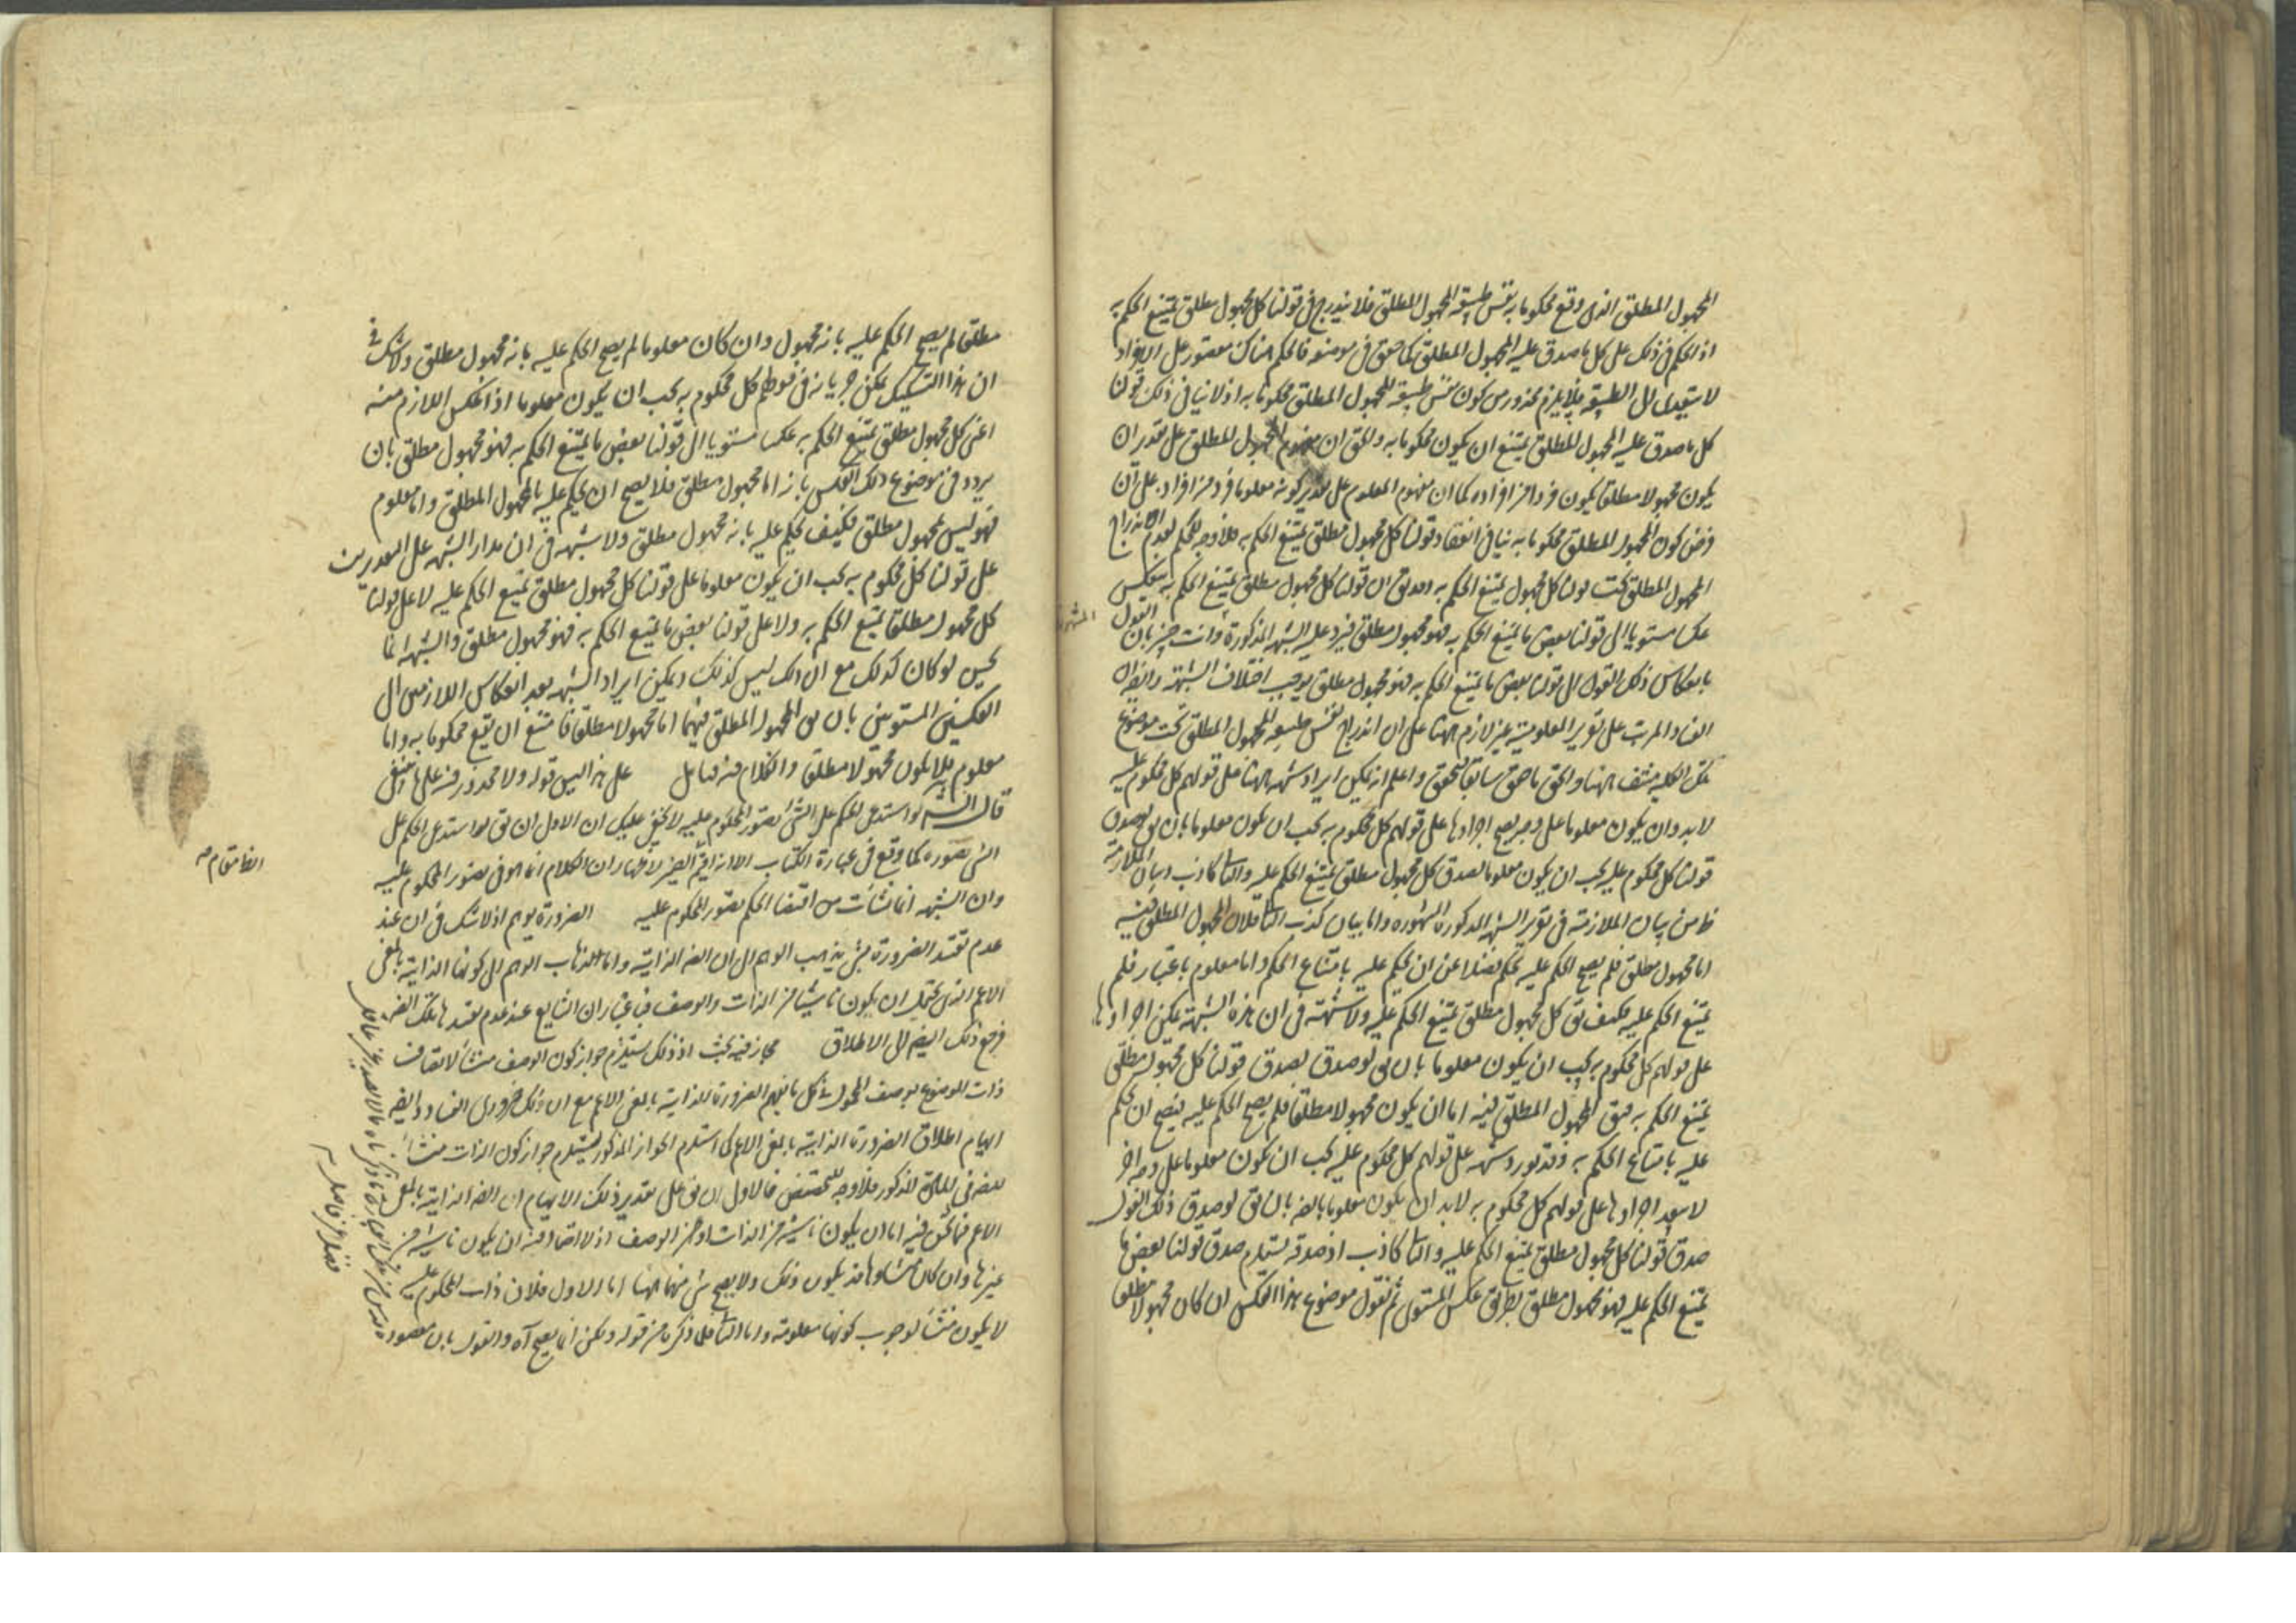 المجهول المطلق الذى وقع محكوما به نفس طبيعة المجهول المطلق فلا يندرج فى قولنا كل مجهول مطلق يمتنع الحكم به
اذ الحكم فى ذلك على كل ما صدق عليه المجهول المطلق كما حقق فى موضعه فالحكم هناك مقصور على الافراد
لا يتعدى الى الطبيعة فلا يلزم محذور من كون نفس طبيعة المجهول المطلق محكوما به اذ لا ينافى ذلك قولنا
كل ما صدق عليه المجهول المطلق يمتنع ان يكون محكوما به والحق ان مفهوم المجهول المطلق على تقدير ان
يكون مجهولا مطلقا يكون فردا من افراده كما ان مفهوم المعلوم على تقدير كونه معلوما فرد من افراده على ان
فرض كون المجهول المطلق محكوما به ينافى انعقاد قولنا كل مجهول مطلق يمتنع الحكم به فلا وجه للحكم بعدم اندراج
المجهول المطلق تحت قولنا كل مجهول يمتنع الحكم به وقد يق ان قولنا كل مجهول مطلق يمتنع الحكم به ينعكس
عكسا مستويا الى قولنا بعض ما يمتنع الحكم به فهو مجهول مطلق فيرد عليه الشبهة المذكورة وانت خبير بان القول
بانعكاس ذلك القول الى قولنا بعض ما يمتنع الحكم به فهو مجهول مطلق يوجب اختلاف الشبهة وايضا ان
الفساد المرتب على تقرير المعلومية غير لازم ههنا على ان اندراج نفس طبيعة المجهول المطلق تحت موضوع
تلك الكلية منتف ههنا والحق ما حقق سابقا فتحقق واعلم انه يمكن ايراد شبهة ههنا على قولهم كل محكوم عليه
لا بد وان يكون معلوما على وجه يصح اجراءها على قولهم كل محكوم به يجب ان يكون معلوما بان يق لو صدق
قولنا كل محكوم عليه يجب ان يكون معلوما لصدق كل مجهول مطلق يمتنع الحكم عليه والتالى كاذب وبيان الملازمة
ظ من بيان الملازمة فى تقرير الشبهة المذكورة المشهورة واما بيان كذب التالى فلان المجهول المطلق فيه
اما مجهول مطلق فلم يصح الحكم عليه بحكم فضلا عن ان يحكم عليه بامتناع الحكم واما معلوم باعتبار فلم
يمتنع الحكم عليه فكيف يق كل مجهول مطلق يمتنع الحكم عليه ولا شبهة فى ان هذه الشبهة يمكن اجراءها
على قولهم كل محكوم به يجب ان يكون معلوما بان يق لو صدق لصدق قولنا كل مجهول مطلق
يمتنع الحكم به فيق المجهول المطلق فيه اما ان يكون مجهولا مطلقا فلم يصح الحكم عليه فيصح ان يحكم
عليه بامتناع الحكم به وقد يورد شبهة على قولهم كل محكوم عليه يجب ان يكون معلوما على وجه اخر
لا يبعد اجراءها على قولهم كل محكوم به لا بد ان يكون معلوما بالضرورة بان يق لو صدق ذلك القول
صدق قولنا كل مجهول مطلق يمتنع الحكم عليه والتالى كاذب اذ صدقه يستلزم صدق قولنا بعض ما
يمتنع الحكم عليه فهو مجهول مطلق بطريق عكس المستوى ثم نقول موضوع هذا العكس ان كان مجهولا مطلقا
مطلقا لم يصح الحكم عليه بانه مجهول وان كان معلوما لم يصح الحكم عليه بانه مجهول مطلق ولا شك فى
ان هذا التشكيك يمكن جريانه فى قولهم كل محكوم به يجب ان يكون معلوما اذ العكس اللازم منه
اعنى كل مجهول مطلق يمتنع الحكم به عكسا مستويا الى قولنا بعض ما يمتنع الحكم به فهو مجهول مطلق بان
يردد فى موضوع ذلك العكس بانه اما مجهول مطلق فلا يصح ان يحكم عليه بالمجهول المطلق واما معلوم
فهو ليس بمجهول مطلق فكيف يحكم عليه بانه مجهول مطلق ولا شبهة فى ان مدار الشبهة على التقديرين
على قولنا كل محكوم به يجب ان يكون معلوما على قولنا كل مجهول مطلق يمتنع الحكم عليه لا على قولنا
كل مجهول مطلقا يمتنع الحكم به ولا على قولنا بعض ما يمتنع الحكم به فهو مجهول مطلق والشبهة انما
يحسن لو كان كذلك مع ان ذلك ليس كذلك ويمكن ايراد الشبهة بعد انعكاس اللازمين الى
العكسين المستويين بان يق المجهول المطلق فيهما اما مجهولا مطلقا فامتنع ان يقع محكوما به واما
معلوم فلا يكون مجهولا مطلقا والكلام فيه فتأمل على هذا ليس قوله ولا محذور فيه على ما ينبغى
قال الشـ لو استدعى الحكم على الشئ تصور المحكوم عليه لا يخفى عليك ان الاول ان يق لو استدعى الحكم على
الشئ تصوره كما وقع فى عبارة الكتاب الا انه اقيم الضمير لاظهار ان الكلام انما هو فى تصور المحكوم عليه
وان الشبهة انما نشأت من اقتضاء الحكم تصور المحكوم عليه الضرورة يوهم اذ لا شك فى ان عند
عدم تقييد الضرورة بشئ يذهب الوهم الى ان الضرورة الذاتية واما الذهاب الوهم الى كونها الذاتية بالمعنى
الاعم الذى يحتمل ان يكون ناشيا من الذات والوصف فباعتبار ان الشايع عند عدم تقييدها تلك الضرورة
فرجع ذلك ايضا الى الاطلاق مجاز فيه بحث اذ ذلك يستلزم جواز كون الوصف منشأ لاتصاف
ذات الموضوع بوصف المحمول فى كل ما يفهم الضرورة الذاتية بالمعنى الاعم مع ان ذلك ضرورى الفساد وايضا
ايهام اطلاق الضرورة الذاتية بالمعنى الاعم كما استلزم الجواز المذكور يستلزم جواز كون الذات منشأ
للضرورة فى المادة المذكورة فلا وجه للتخصيص فالاول ان يق على تقدير ذلك الايهام ان الضرورة الذاتية بالمعنى
الاعم فيما نحن فيه اما ان يكون ناشية من الذات او من الوصف اذ لا احتمال فيه ان يكون ناشية من
غيرها وان كان منشاؤها قد يكون ذلك ولا يصح شئ منهما ههنا اما الاول فلان ذات المحكوم عليه
لا يكون منشأ لوجوب كونها معلومة واما الثانى فلما ذكرنا من قوله ولكن انما يصح آه والقول بان مقصوده